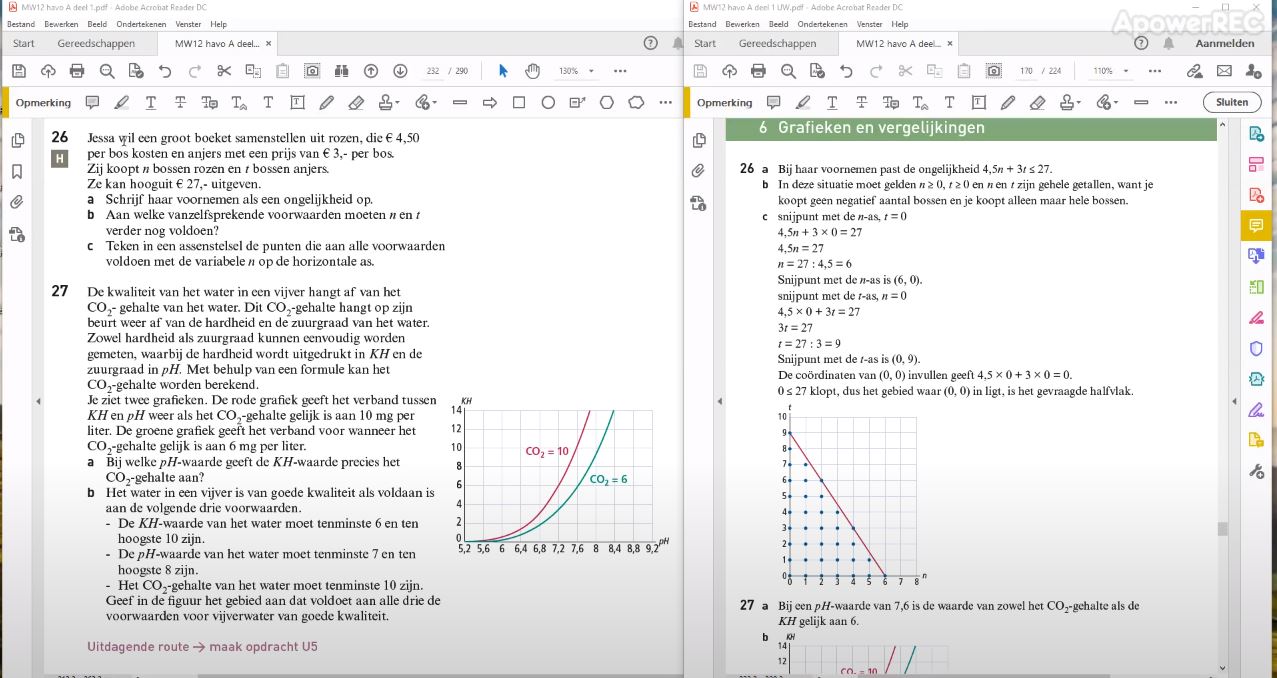 MW12 havo A deel 1.pdf - Adobe Acrobat Reader DC
Bestand Bewerken Beeld Ondertekenen Venster Help
Start Gereedschappen MW12 havo A deel... ×
232 / 290 130%
Opmerking
26 Jessa wil een groot boeket samenstellen uit rozen, die € 4,50
H per bos kosten en anjers met een prijs van € 3,- per bos.
Zij koopt n bossen rozen en t bossen anjers.
Ze kan hooguit € 27,- uitgeven.
a Schrijf haar voornemen als een ongelijkheid op.
b Aan welke vanzelfsprekende voorwaarden moeten n en t
verder nog voldoen?
c Teken in een assenstelsel de punten die aan alle voorwaarden
voldoen met de variabele n op de horizontale as.
27 De kwaliteit van het water in een vijver hangt af van het
CO₂- gehalte van het water. Dit CO₂-gehalte hangt op zijn
beurt weer af van de hardheid en de zuurgraad van het water.
Zowel hardheid als zuurgraad kunnen eenvoudig worden
gemeten, waarbij de hardheid wordt uitgedrukt in KH en de
zuurgraad in pH. Met behulp van een formule kan het
CO₂-gehalte worden berekend.
Je ziet twee grafieken. De rode grafiek geeft het verband tussen
KH en pH weer als het CO₂-gehalte gelijk is aan 10 mg per
liter. De groene grafiek geeft het verband voor wanneer het
CO₂-gehalte gelijk is aan 6 mg per liter.
a Bij welke pH-waarde geeft de KH-waarde precies het
CO₂-gehalte aan?
b Het water in een vijver is van goede kwaliteit als voldaan is
aan de volgende drie voorwaarden.
- De KH-waarde van het water moet tenminste 6 en ten
hoogste 10 zijn.
- De pH-waarde van het water moet tenminste 7 en ten
hoogste 8 zijn.
- Het CO₂-gehalte van het water moet tenminste 10 zijn.
Geef in de figuur het gebied aan dat voldoet aan alle drie de
voorwaarden voor vijverwater van goede kwaliteit.
Uitdagende route → maak opdracht U5
KH
14
12
10
8
6
4
2
0
CO₂ = 10
CO₂ = 6
5,2 5,6 6 6,4 6,8 7,2 7,6 8 8,4 8,8 9,2 pH
MW12 havo A deel 1 UW.pdf - Adobe Acrobat Reader DC
ApowerREC
Bestand Bewerken Beeld Ondertekenen Venster Help
Start Gereedschappen MW12 havo A deel... × Aanmelden
170 / 224 110%
Opmerking Sluiten
6 Grafieken en vergelijkingen
26 a Bij haar voornemen past de ongelijkheid 4,5n + 3t ≤ 27.
b In deze situatie moet gelden n ≥ 0, t ≥ 0 en n en t zijn gehele getallen, want je
koopt geen negatief aantal bossen en je koopt alleen maar hele bossen.
c snijpunt met de n-as, t = 0
4,5n + 3 × 0 = 27
4,5n = 27
n = 27 : 4,5 = 6
Snijpunt met de n-as is (6, 0).
snijpunt met de t-as, n = 0
4,5 × 0 + 3t = 27
3t = 27
t = 27 : 3 = 9
Snijpunt met de t-as is (0, 9).
De coördinaten van (0, 0) invullen geeft 4,5 × 0 + 3 × 0 = 0.
0 ≤ 27 klopt, dus het gebied waar (0, 0) in ligt, is het gevraagde halfvlak.
t
10
9
8
7
6
5
4
3
2
1
0
0 1 2 3 4 5 6 7 8 n
27 a Bij een pH-waarde van 7,6 is de waarde van zowel het CO₂-gehalte als de
KH gelijk aan 6.
b KH
14
12
CO₂ = 10